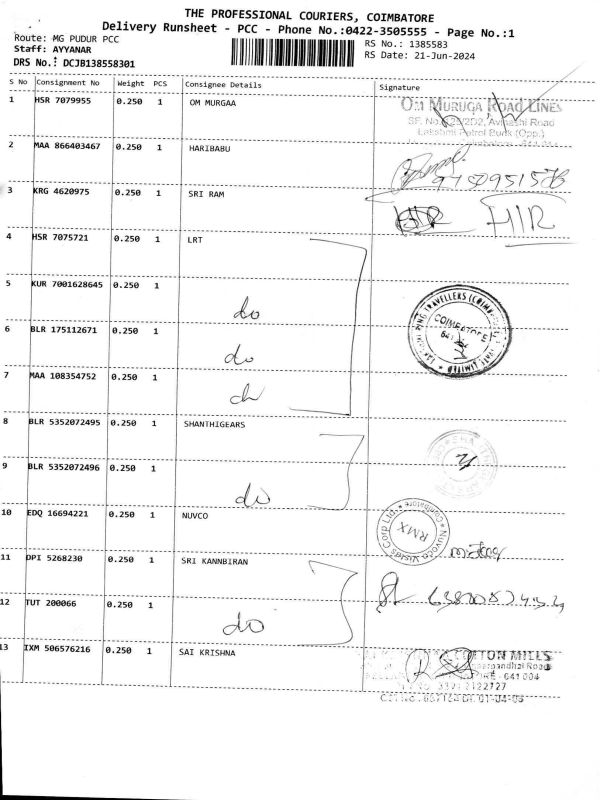 THE PROFESSIONAL COURIERS, COIMBATORE
Delivery Runsheet - PCC - Phone No.:0422-3505555 - Page No.:1
Route: MG PUDUR PCC
Staff: AYYANAR
DRS No.: DCJB138558301
RS No.: 1385583
RS Date: 21-Jun-2024
S No Consignment No Weight PCS Consignee Details Signature
1 HSR 7079955 0.250 1 OM MURGAA
OM MURUGA ROAD LINES
Avinashi Road
Lakshmi Petrol Bunk (Opp.)
2 MAA 866403467 0.250 1 HARIBABU
3 KRG 4620975 0.250 1 SRI RAM
HR HIR
4 HSR 7075721 0.250 1 LRT
5 KUR 7001628645 0.250 1 do
TRAVELLERS (COIMBATORE) PRIVATE LIMITED
COIMBATORE
6 BLR 175112671 0.250 1 do
7 MAA 108354752 0.250 1 do
8 BLR 5352072495 0.250 1 SHANTHIGEARS
9 BLR 5352072496 0.250 1 do
10 EDQ 16694221 0.250 1 NUVCO
Nuvoco Vistas Corp Ltd. * Coimbatore *
RMX
11 DPI 5268230 0.250 1 SRI KANNBIRAN
12 TUT 200066 0.250 1 do
13 IXM 506576216 0.250 1 SAI KRISHNA
COTTON MILLS
641 004